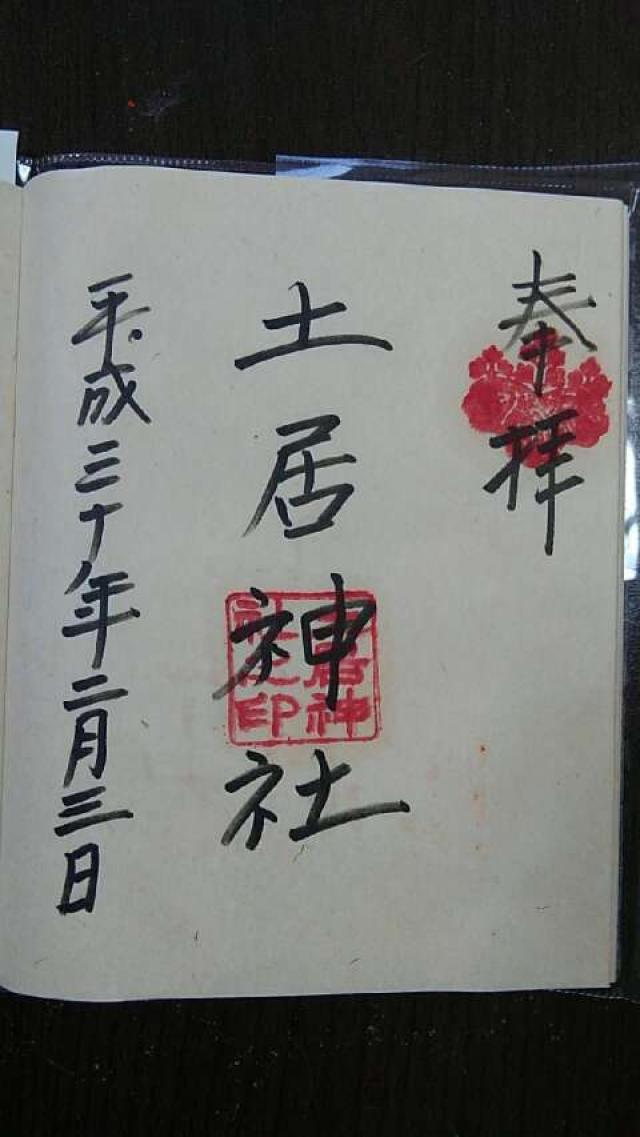 奉拝
土居神社
土居神社之印
平成三十年二月三日